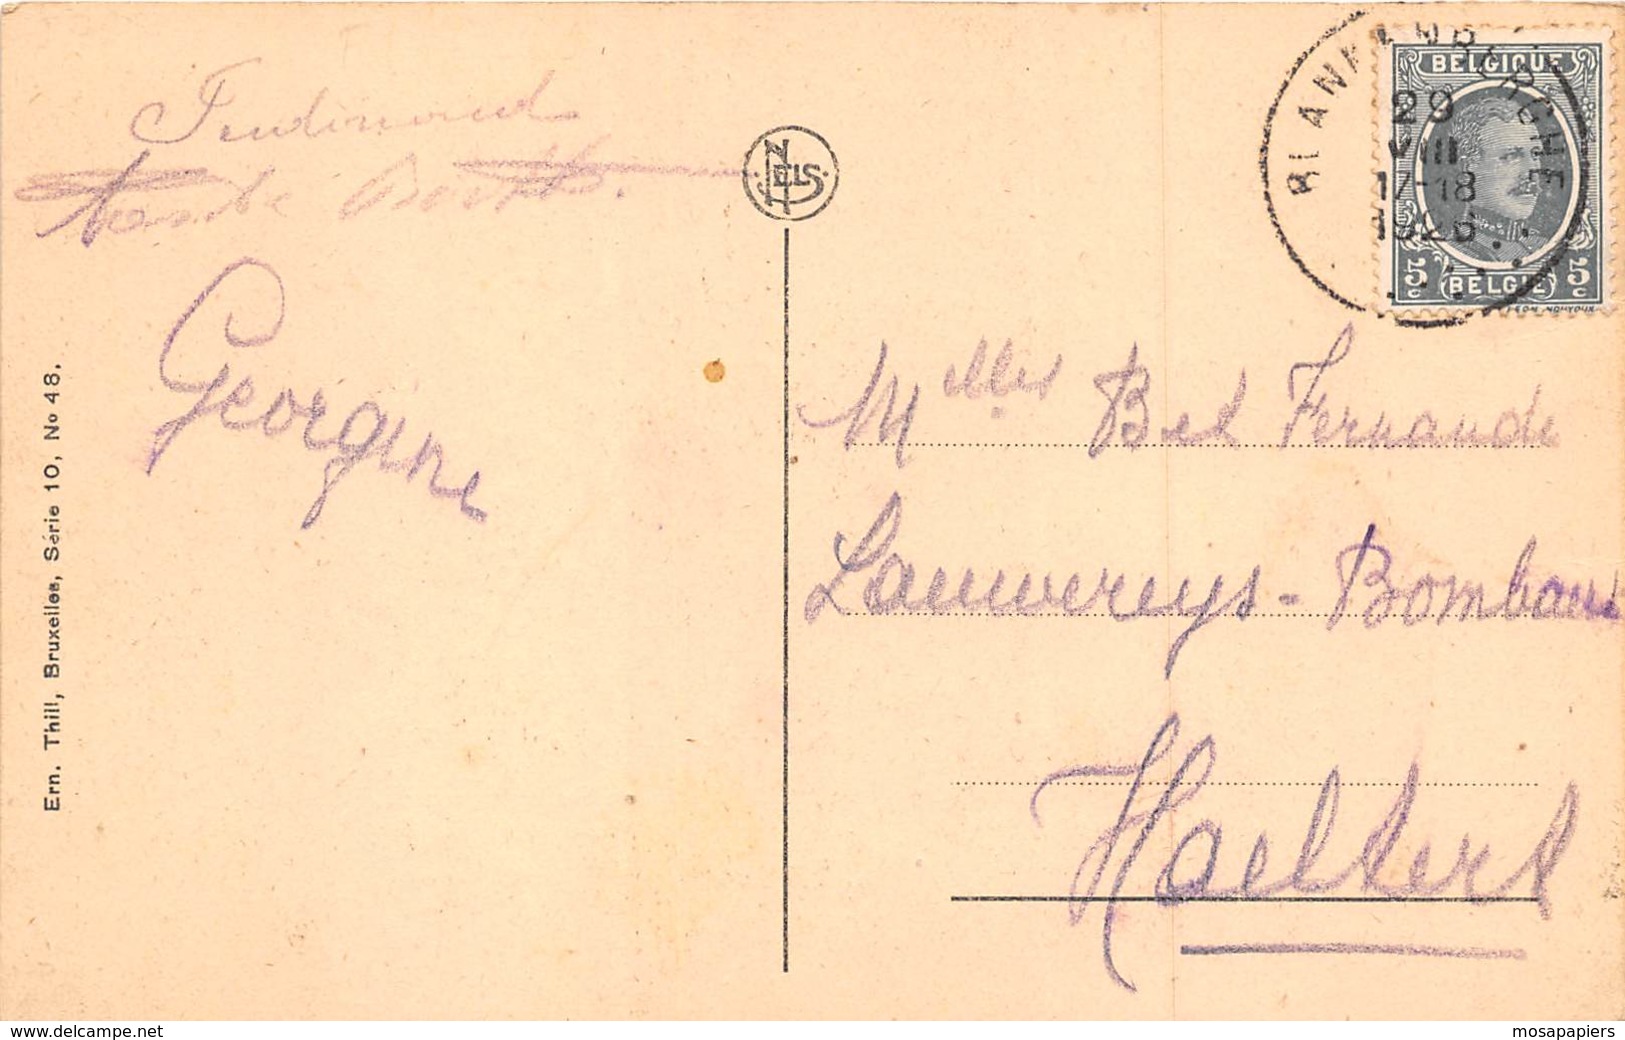 Ferdinand
Georgine
Ern. Thill, Bruxelles, Série 10, No 48.
NELS
BLANKENBERGHE
29
VIII
17-18
1926
BELGIQUE
5c 5c
BELGIË
Melles Bel Fernande
Lauwereys - Bombaut
Haeltert
www.delcampe.net
mosapapiers